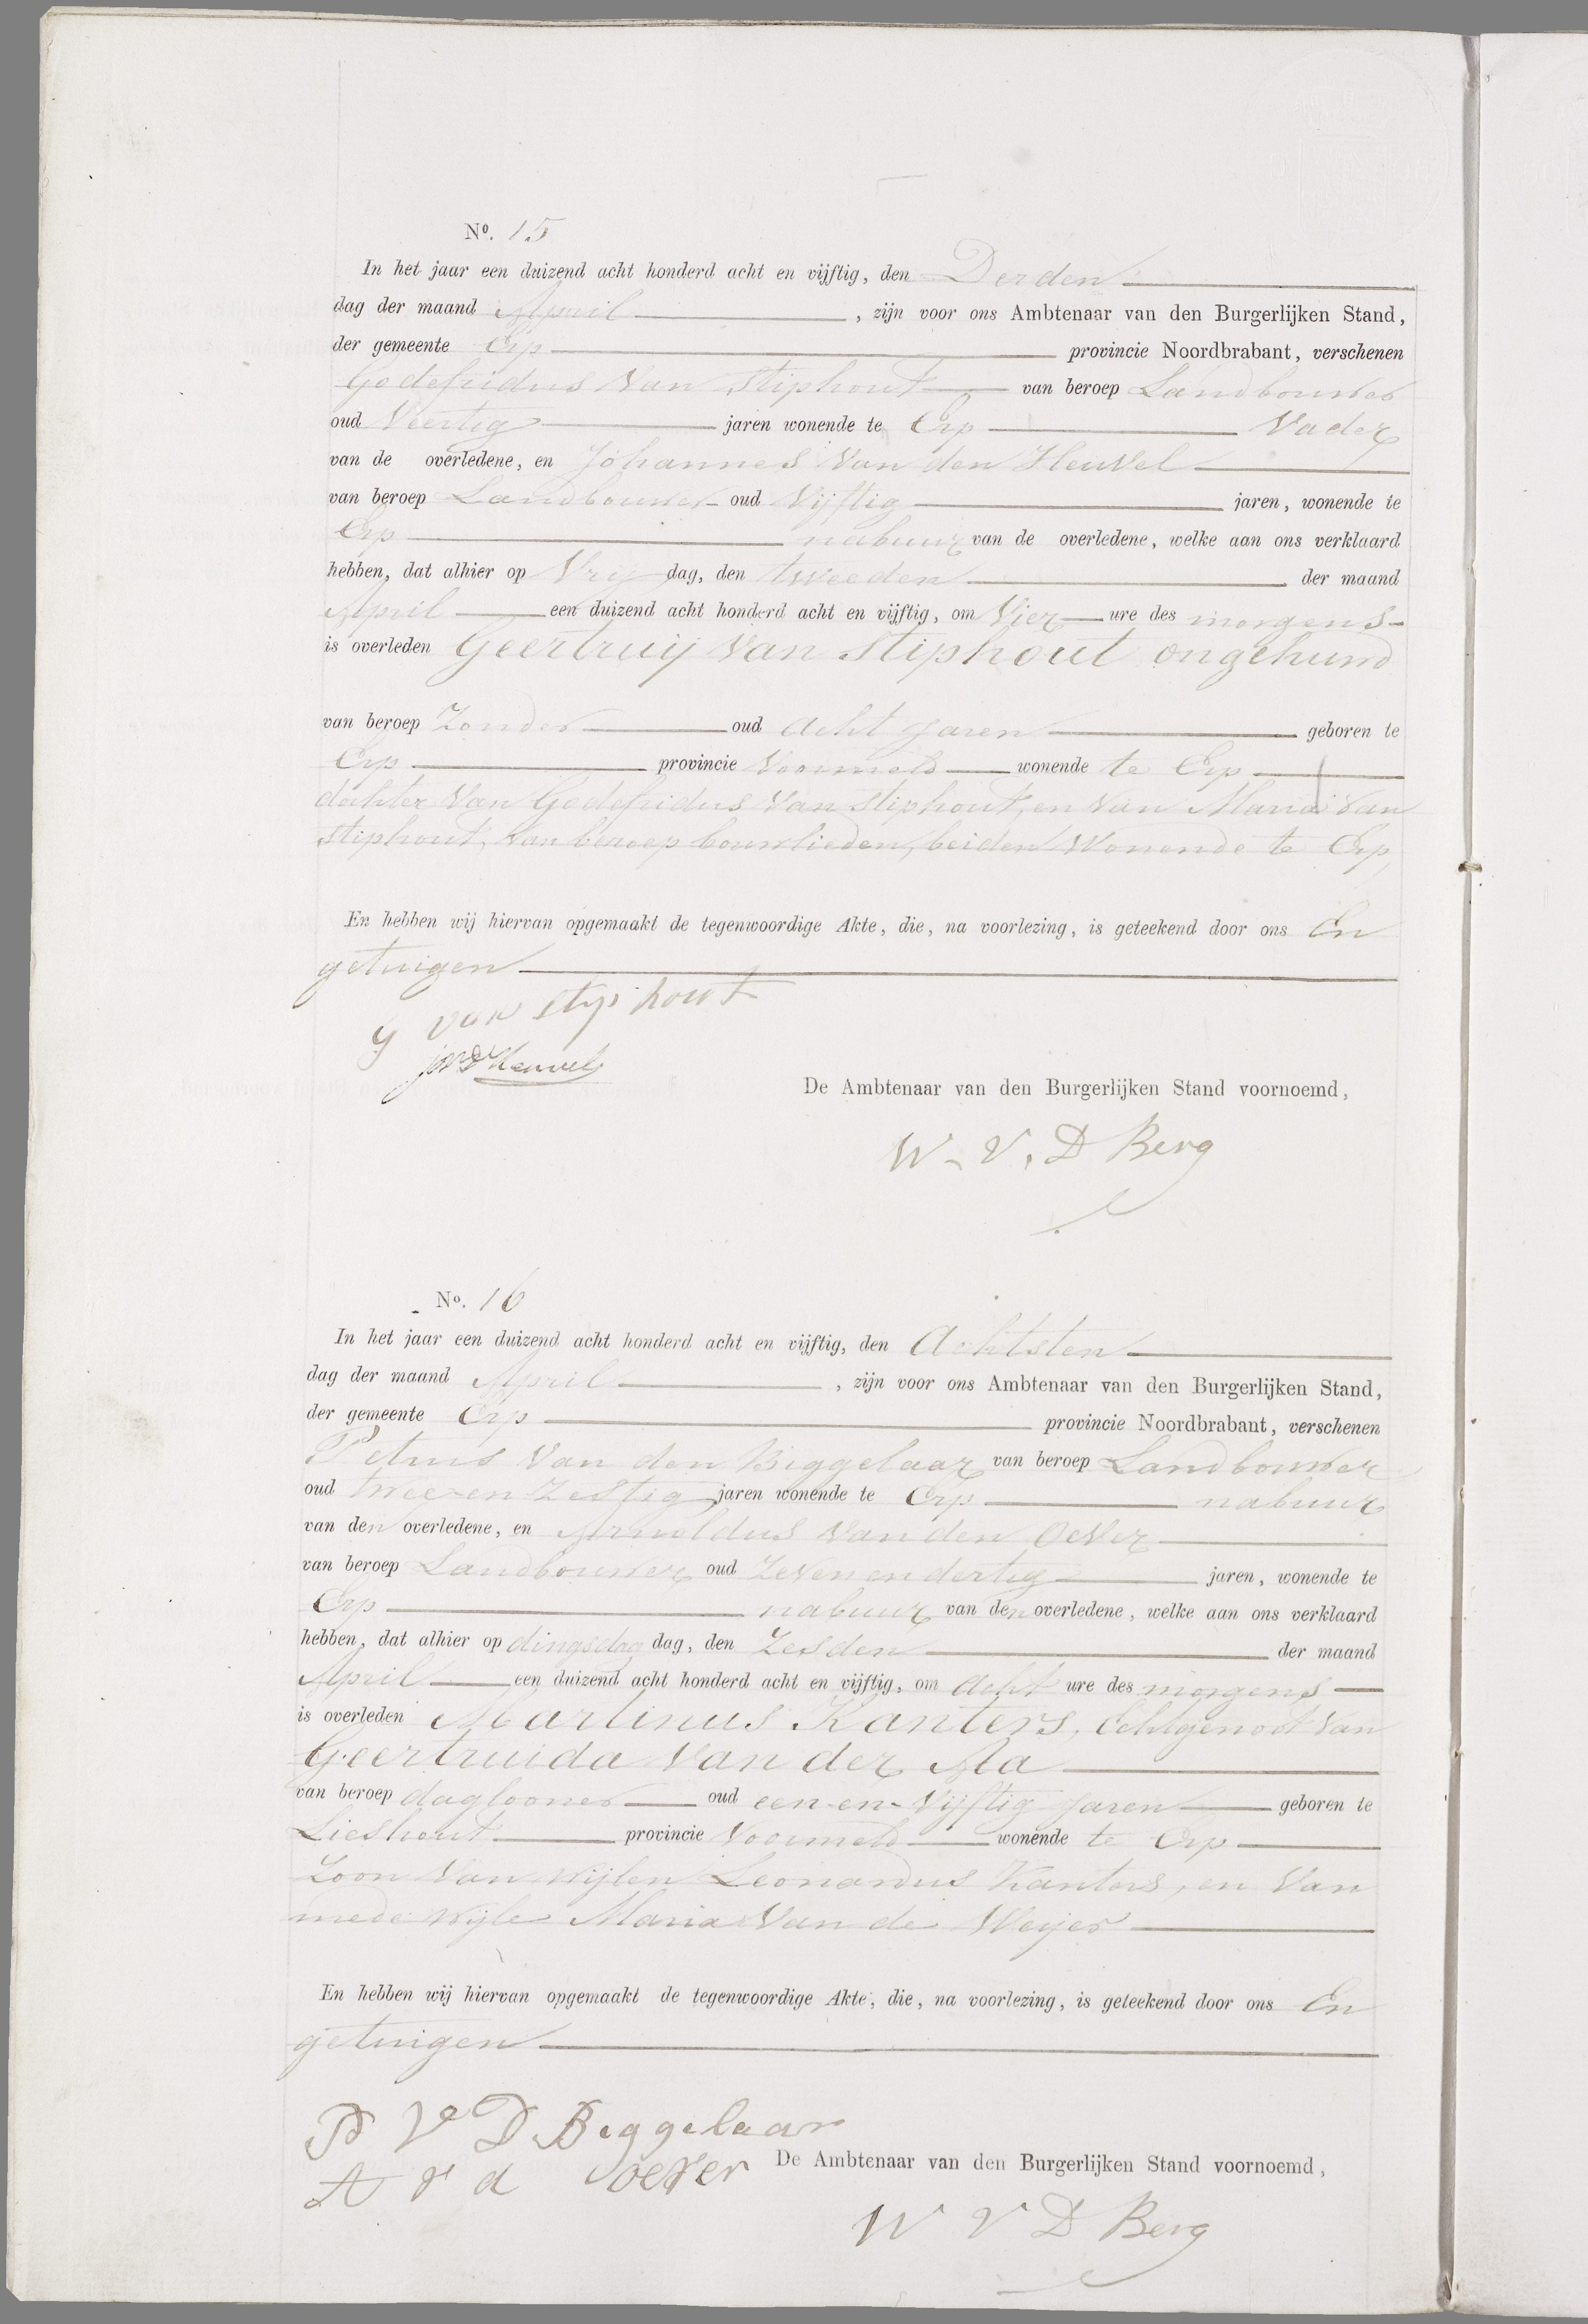 Nº. 15
In het jaar een duizend acht honderd acht en vijftig, den Derden
dag der maand April , zijn voor ons Ambtenaar van den Burgerlijken Stand,
der gemeente Erp provincie Noordbrabant, verschenen
Godefridus Van Stiphout van beroep Landbouwer
oud Veertig jaren wonende te Erp Vader
van de overledene, en Johannes Van den Heuvel
van beroep Landbouwer oud Vijftig jaren, wonende te
Erp nabuur van de overledene, welke aan ons verklaard
hebben, dat alhier op Vrij dag, den tweeden der maand
April een duizend acht honderd acht en vijftig, om Vier ure des morgens
is overleden Geertruij Van Stiphout ongehuwd
van beroep Zonder oud Acht Jaren geboren te
Erp provincie Voormeld wonende te Erp
dochter Van Godefridus Van Stiphout, en Van Maria Van
Stiphout, Van beroep bouwlieden, beiden Wonende te Erp,
En hebben wij hiervan opgemaakt de tegenwoordige Akte, die, na voorlezing, is geteekend door ons En
getuigen
G van Stiphout
J v d Heuvel
De Ambtenaar van den Burgerlijken Stand voornoemd,
W. V. D Berg
Nº. 16
In het jaar een duizend acht honderd acht en vijftig, den Achtsten
dag der maand April , zijn voor ons Ambtenaar van den Burgerlijken Stand,
der gemeente Erp provincie Noordbrabant, verschenen
Petrus Van den Biggelaar van beroep Landbouwer
oud twee-en Zestig jaren wonende te Erp nabuur
van den overledene, en Arnoldus Van den Oever
van beroep Landbouwer oud Zeven en dertig jaren, wonende te
Erp nabuur van den overledene, welke aan ons verklaard
hebben, dat alhier op dingsdag dag, den Zesden der maand
April een duizend acht honderd acht en vijftig, om Acht ure des morgens
is overleden Martinus Kanters, Echtgenoot Van
Geertruida Van der Aa
van beroep daglooner oud een-en-Vijftig Jaren geboren te
Lieshout provincie Voormeld wonende te Erp
Zoon Van Wijlen Leonardus Kanters, en Van
mede Wijle Maria Van de Weijer
En hebben wij hiervan opgemaakt de tegenwoordige Akte, die, na voorlezing, is geteekend door ons En
getuigen
P V D Biggelaar
A V d oever
De Ambtenaar van den Burgerlijken Stand voornoemd,
W V D Berg